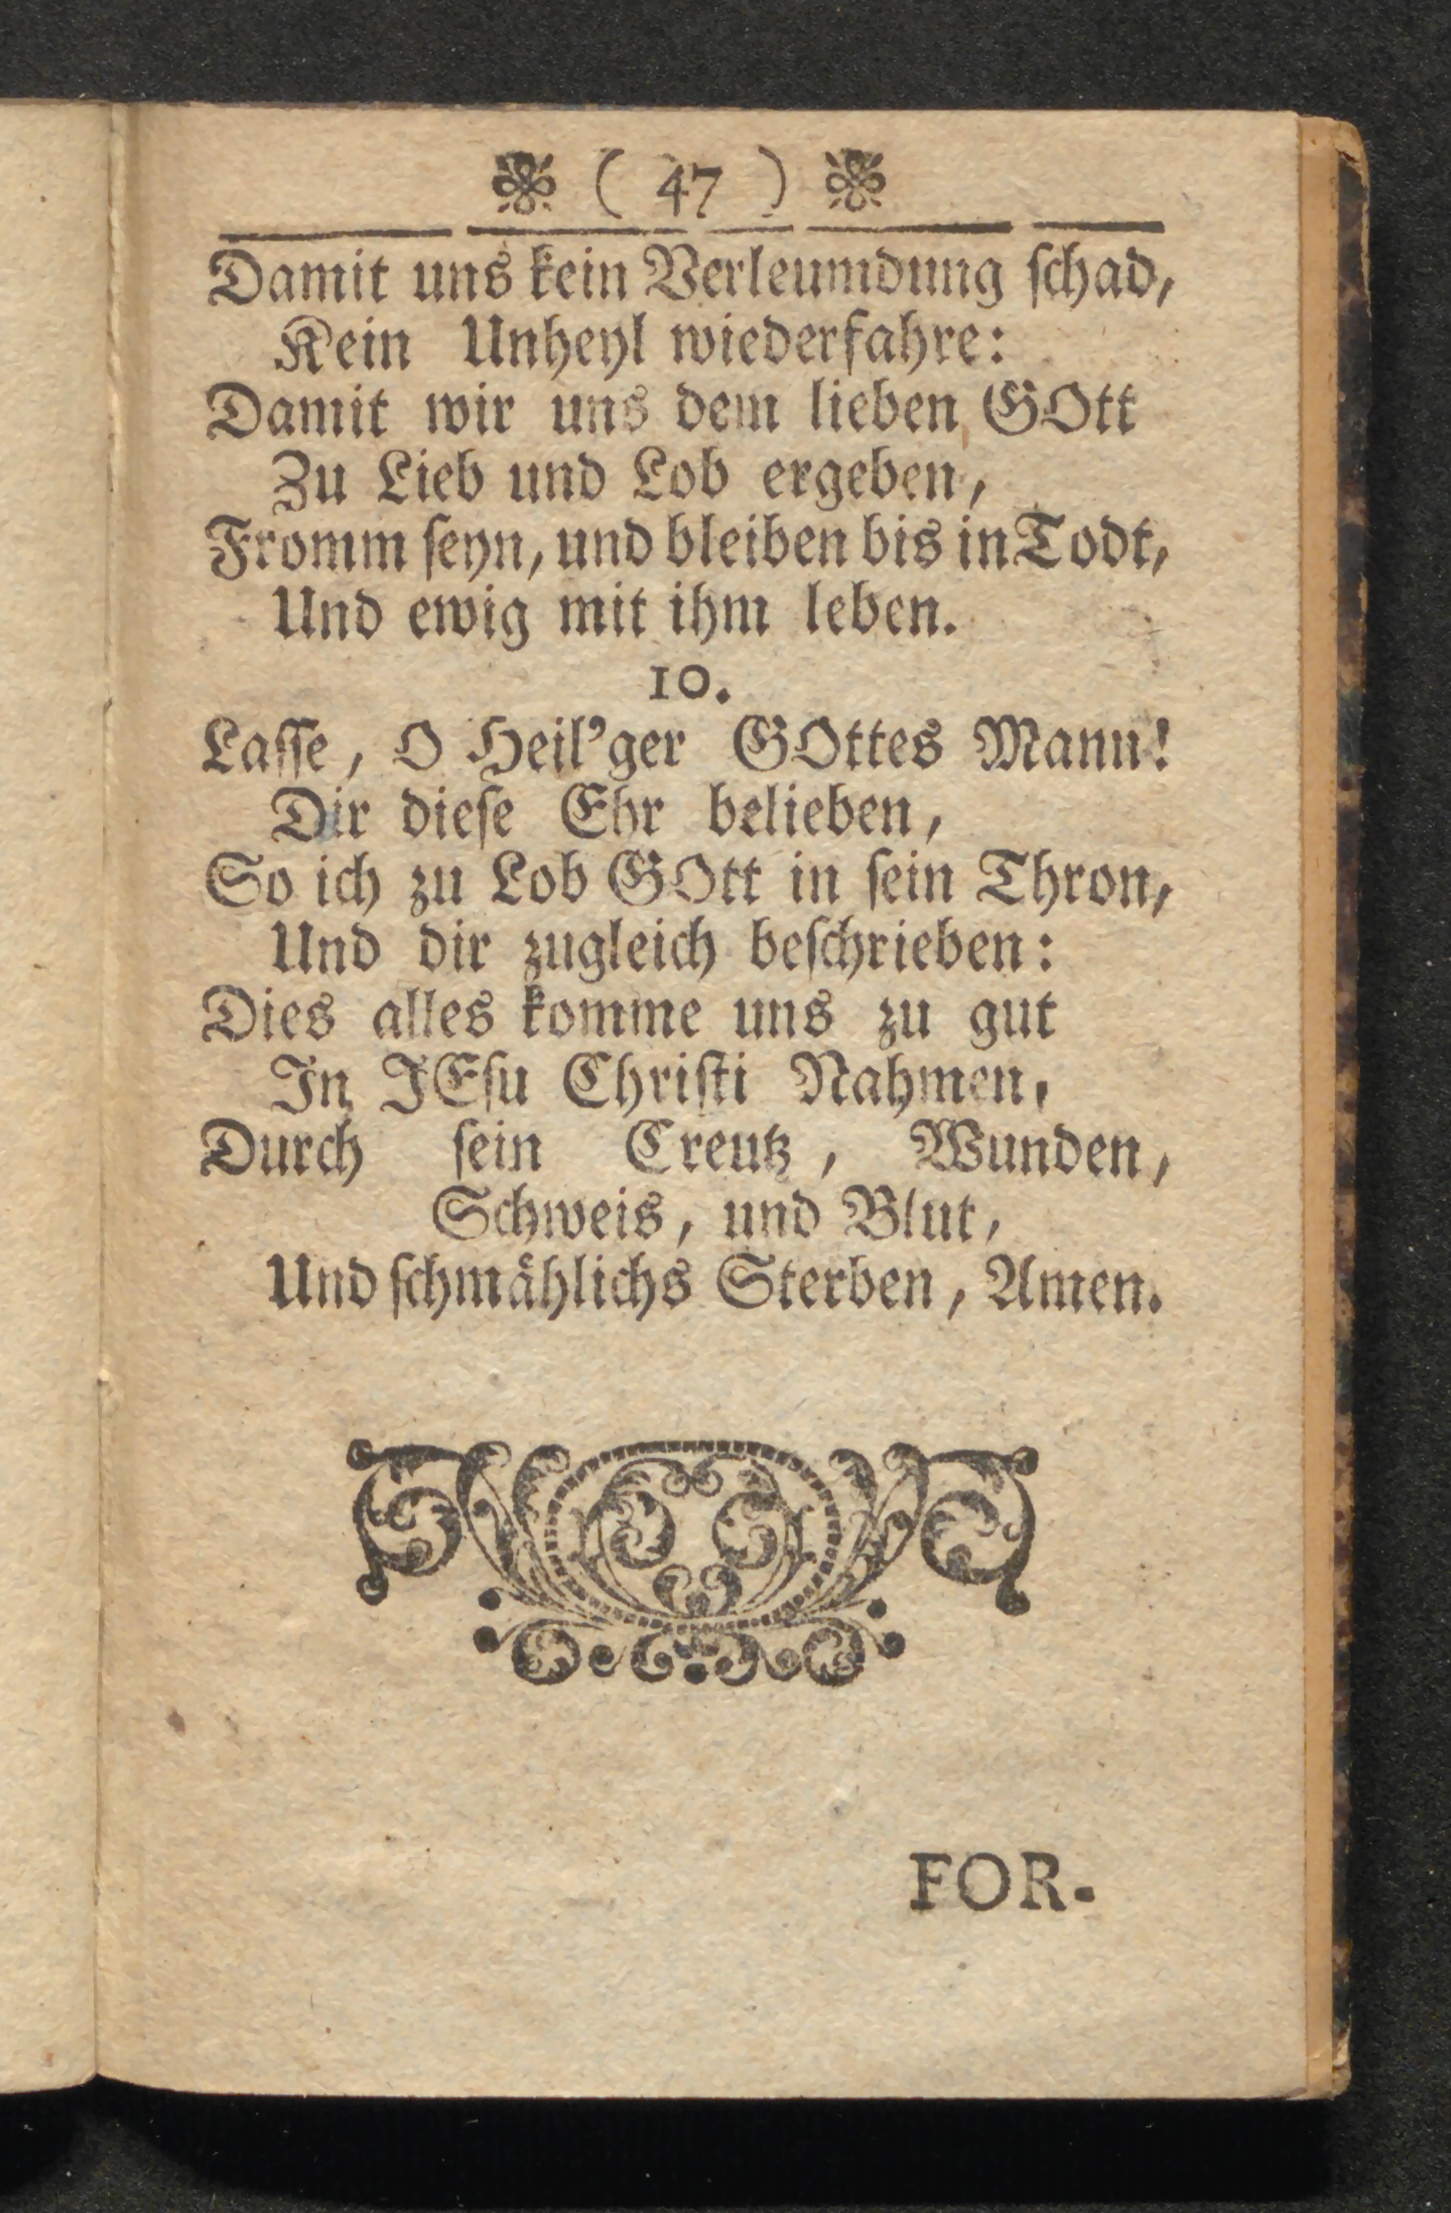 ( 47 )
Damit uns kein Verleumdung ſchad,
Kein Unheyl wiederfahre:
Damit wir uns dem lieben GOtt
Zu Lieb und Lob ergeben,
Fromm ſeyn, und bleiben bis in Todt,
Und ewig mit ihm leben.
10.
Laſſe, O Heil'ger GOttes Mann!
Dir dieſe Ehr belieben,
So ich zu Lob GOtt in ſein Thron,
Und dir zugleich beſchrieben:
Dies alles komme uns zu gut
In JEſu Chriſti Nahmen,
Durch ſein Creutz, Wunden,
Schweis, und Blut,
Und ſchmählichs Sterben, Amen.
FOR-